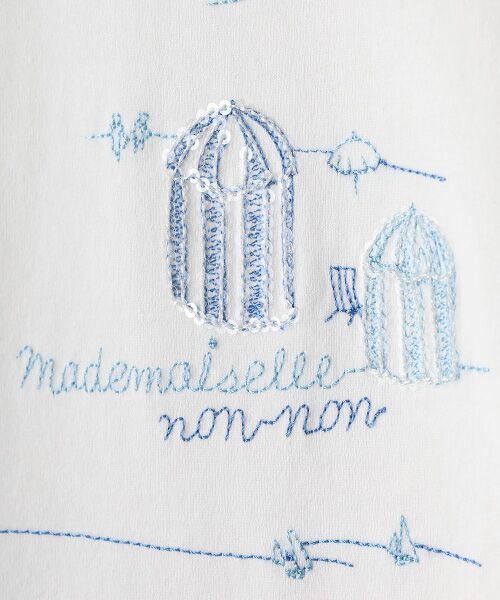 mademoiselle
non-non